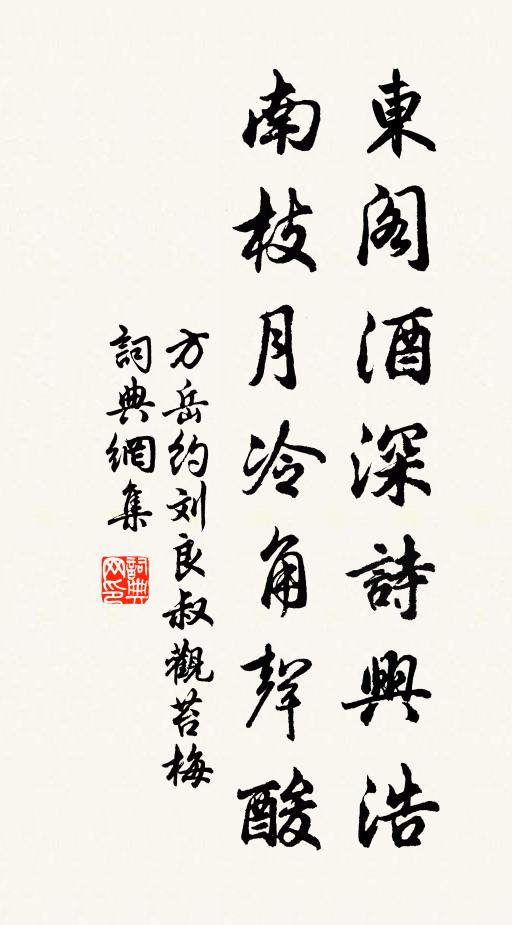 東閣酒深詩興浩
南枝月冷角聲酸
方岳約刘良叔觀苔梅
詞典網集
詞典网印